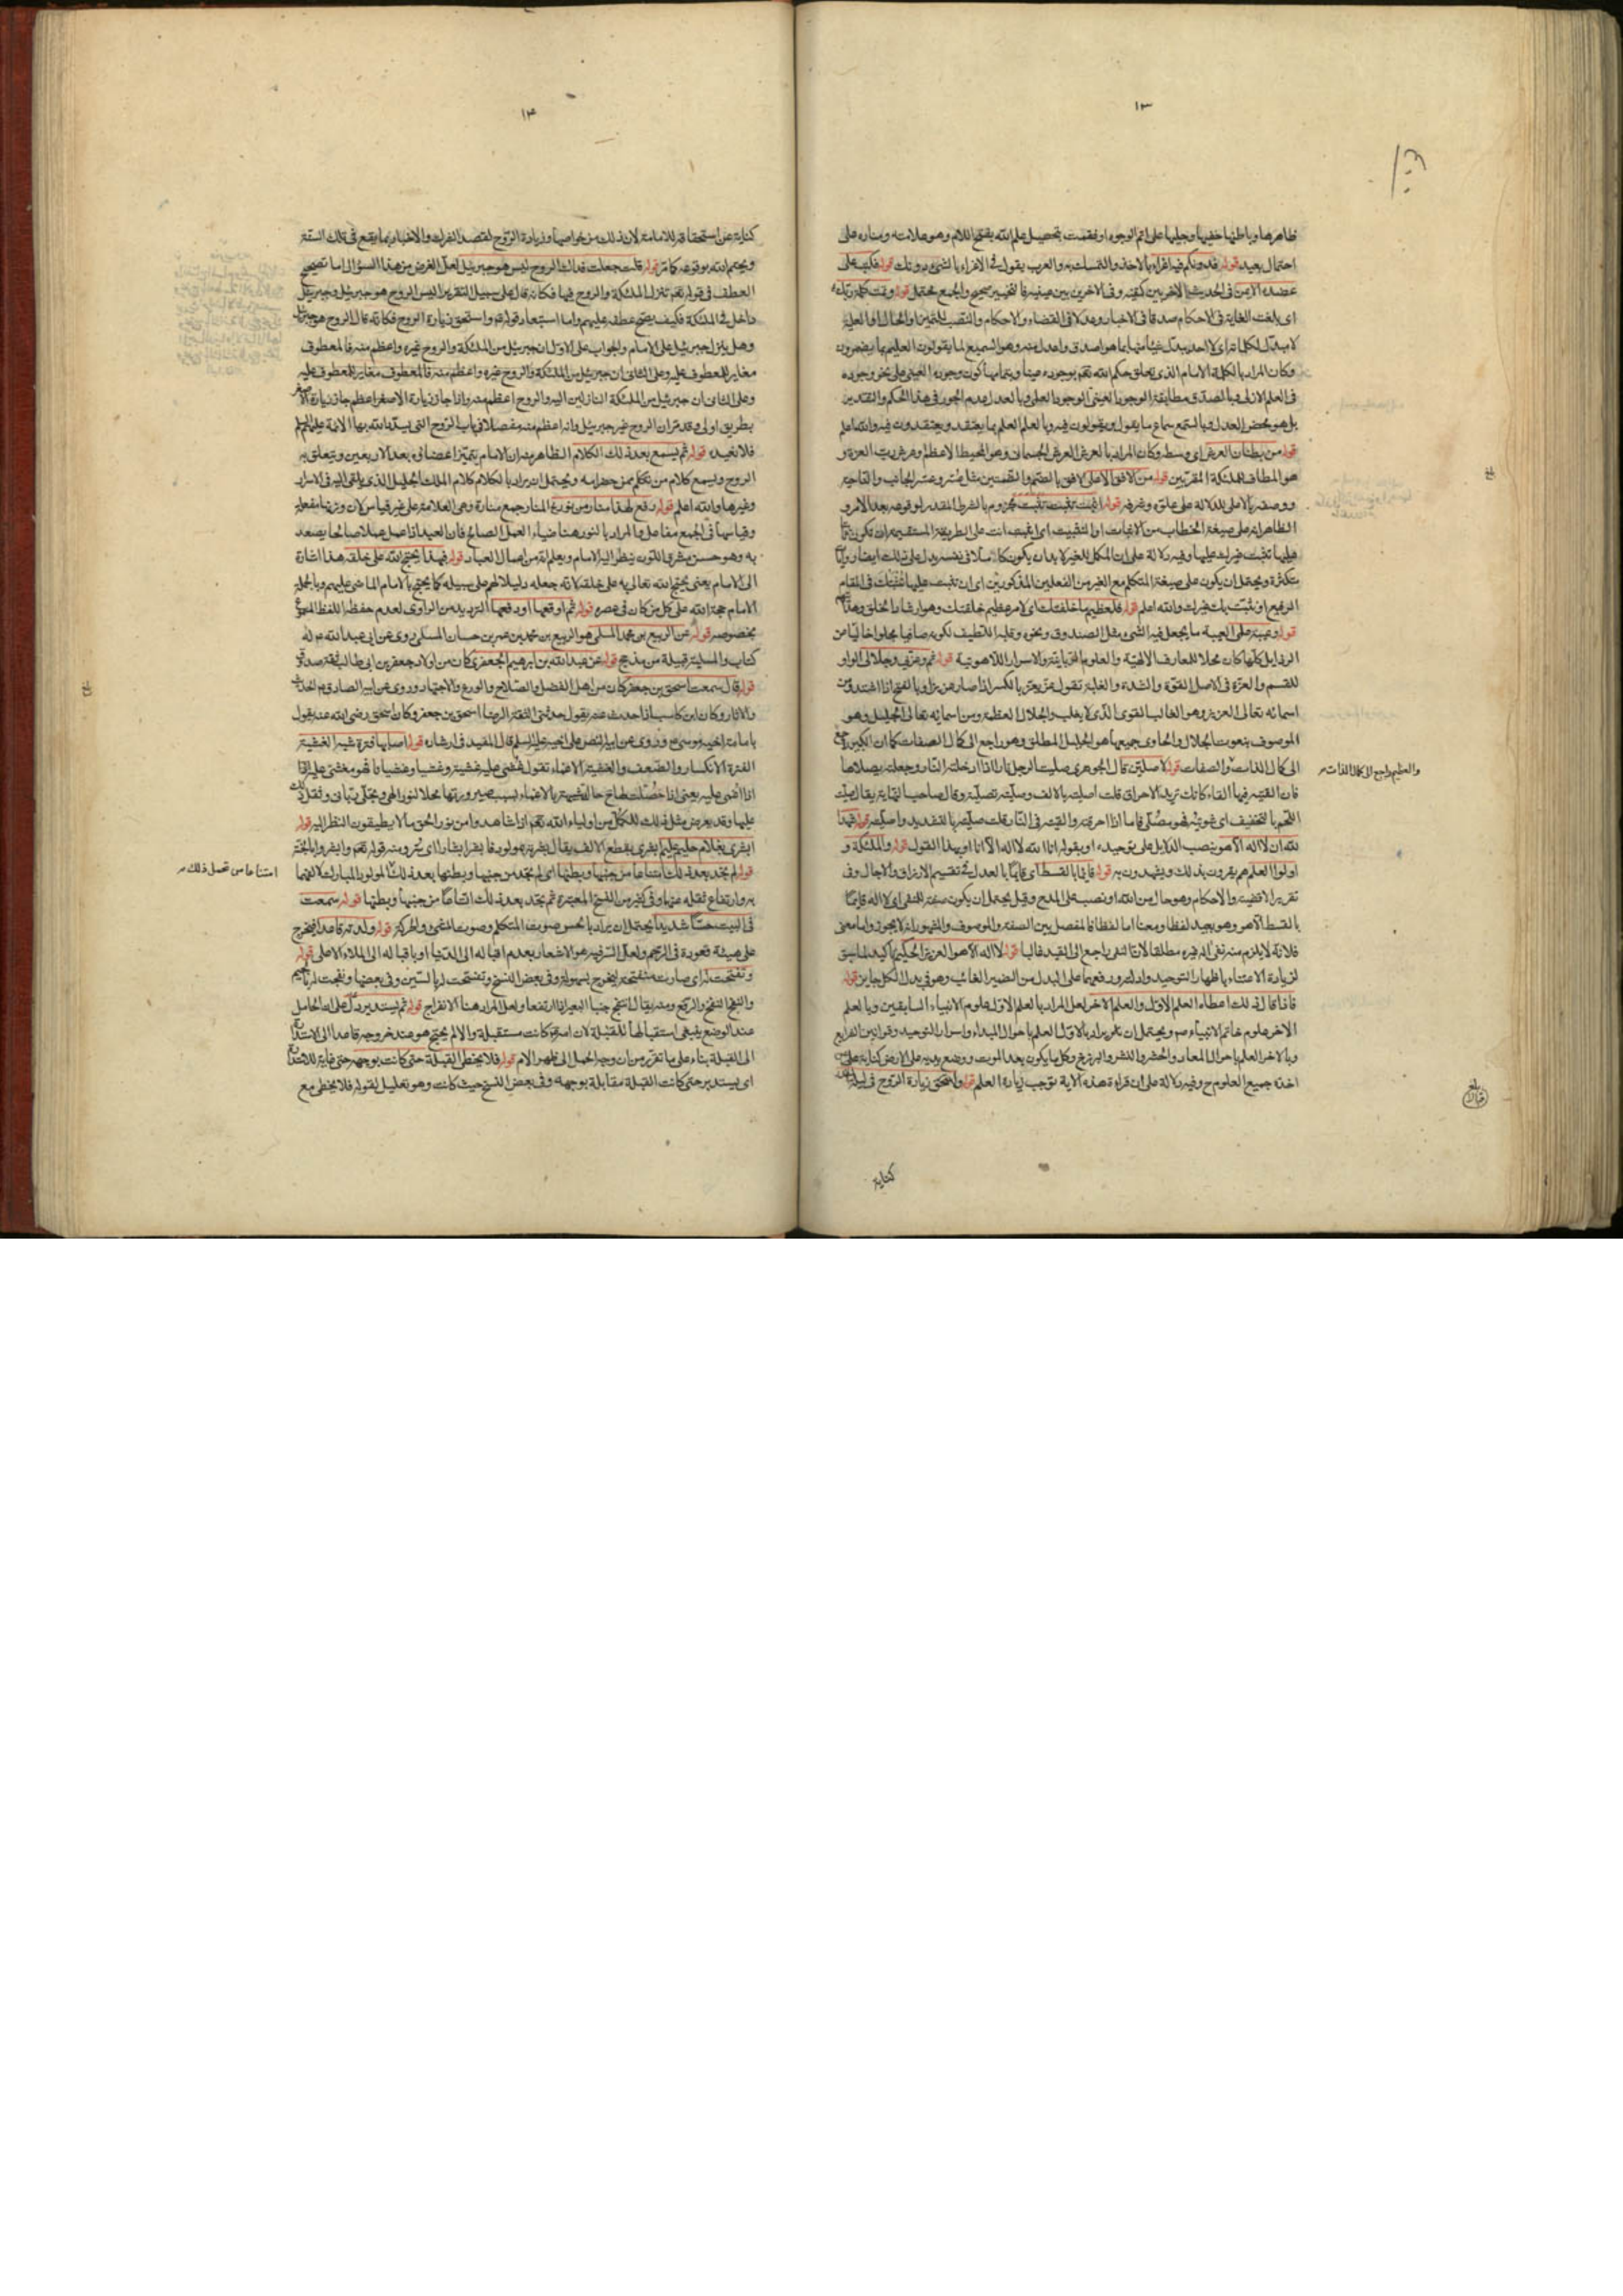 ١٣
ظاهرها وباطنها خفيها وجليها على اتم الوجوه او فقمت بتحصيل علم الله بفتح اللام وهو علامته ومناره على
احتمال بعيد قوله فدونكم فيه اغراء بالاخذ والتمسك به والعرب يقول في الاغراء بالشئ دونك قوله فكتب على
عضده الايمن في الحديث الاخر بين كتفيه وفى الاخر بين عينيه فالتخيير صحيح والجمع محتمل قوله وتمت كلمة ربك
اى بلغت الغاية فى الاحكام صدقا فى الاخبار وعدلا فى القضاء والاحكام والنصب للتمييز او الحال او العلية
لا مبدل لكلماته اى لا احد يبدل شيئا منها بما هو اصدق واعدل منه وهو السميع لما يقولون العليم بما يضمرون
وكان المراد بالكلمة الامام الذى تعلق حكم الله تعم بوجوده عينا وبتمامها كون وجوده العينى على نحو وجوده
فى العلم الازلى وبالصدق مطابقة الوجود العينى الوجود العلمى وبالعدل عدم الجور فى هذا الحكم والتقدير
بل هو محض العدل وبالسميع سماع ما يقول او يقولون فيه وبالعلم العلم بما يعتقد ويعتقدون فيه والله اعلم
قوله من بطنان العرش اى وسطه وكان المراد بالعرش العرش الجسمانى وهو المحيط الاعظم وعرش رب العزة و
هو المطاف للملئكة المقربين قوله من الافق الاعلى الافق بالضم وبالضمتين مثل عُسْر وعُسُر الجانب والناحية
ووصفه بالاعلى للدلالة على علوه وشرفه قوله اثبت تثبت تثبت مجزوم بالشرط المقدر لوقوعه بعد الامر و
الظاهر انه على صيغة الخطاب من الاثبات او التثبيت اى اثبت انت على الطريقة المستقيمة
عليها تثبت غيرك عليها وفيه دلالة على ان المكمل للغير لابد ان يكون كاملا فى نفسه يدل على ذلك ايضا روايات
متكثرة ويحتمل ان يكون على صيغة المتكلم مع الغير من الفعلين المذكورين اى ان تثبت عليها نُثْبِتك فى المقام
الرفيع او نثبت بك غيرك والله اعلم قوله فلعظيم ما خلقتك اى لامر عظيم خلقتك وهو ارشاد الخلق وهدايتهم
قوله وعيبة علمى العيبة ما يجعل فيه الشئ مثل الصندوق ونحوه وقلبه اللطيف لكونه صافيا مجلوا خاليا من
الرذايل كلها كان محلا للمعارف الالهية والعلوم الربانية والاسرار اللاهوتية قوله ثم وعزتى وجلالى الواو
للقسم والعزة فى الاصل القوة والشدة والغلبة تقول عز يعز بالكسر اذا صار عزيزا وبالفتح اذا اشتد ومن
اسمائه تعالى العزيز وهو الغالب القوى الذى لا يغلب والجلال العظمة ومن اسمائه تعالى الجليل وهو
الموصوف بنعوت الجلال والحاوى جميعها هو الجليل المطلق وهو راجع الى كمال الصفات كما ان الكبير راجع
الى كمال الذات والصفات قوله لاصلين قال الجوهرى صليت الرجل نارا اذا ادخلته النار وجعلته يصلاها
والعظيم راجع الى كمال الذات
فان القيته فيها القاء كانك تريد الاحراق قلت اصليته بالالف وصليته تصلية وقال صاحب النهاية يقال صليت
اللحم بالتخفيف اى شويته فهو مصلى فاما اذا احرقته والقيته فى النار قلت صليته بالتشديد واصليته قوله شهد
الله ان لا اله الا هو بنصب الدلايل على توحيده او بقوله انا الله لا اله الا انا او بهذا القول قوله والملئكة و
اولوا العلم هم يقرون بذلك ويشهدون به قوله قايما بالقسط اى قايما بالعدل فى تقسيم الارزاق والاجال وفى
تقرير الاقضية والاحكام وهو حال من الله او نصب على المدح وقيل يحتمل ان يكون صفة للمنفى اى لا اله قايما
بالقسط الا هو وهو بعيد لفظا ومعنا اما لفظا فالفصل بين الصفة والموصوف والمشهور انه لا يجوز واما معنى
فلانه لا يلزم منه نفى اله غيره مطلقا لان النفى راجع الى القيد غالبا قوله لا اله الا هو العزيز الحكيم تاكيد لما سبق
لزيادة الاعتناء باظهار التوحيد ولذلك ورد فعهما على البدل من الضمير الغائب وهو فى بدل الكل جايز قوله
فاذا قال ذلك اعطاه العلم الاول والعلم الاخر لعل المراد بالعلم الاول علوم الانبياء السابقين وبالعلم
الاخر علوم خاتم الانبياء ص ويحتمل ان يراد بالاول العلم باحوال المبداء واسرار التوحيد وقوانين الشرايع
وبالاخر العلم باحوال المعاد والحشر والنشر والبرزخ وكل ما يكون بعد الموت ووضع يديه على الارض كناية على
اخذه جميع العلوم ح وفيه دلالة على ان قراءة هذه الاية توجب زيادة العلم قوله واستحق زيادة الروح فى ليلة القدر
كناية
١٤
كناية عن استحقاقه للامامة لان ذلك من خواصها وزيادة الروح لقصد التبرك والاخبار بما يقع فى تلك السنة
ويحتم الله بوقوعه كما مر قوله قلت جعلت فداك الروح ليس هو جبرئيل لعل الغرض من هذا السؤال اما تصحيح
العطف فى قوله تعم تنزل الملئكة والروح فيها فكانه قال على سبيل التقرير اليس الروح هو جبرئيل وجبرئيل
داخل فى الملئكة فكيف يصح عطفه عليهم واما استبعاد قوله ع واستحق زيادة الروح فكانه قال الروح هو جبرئيل
وهل ينزل جبرئيل على الامام والجواب على الاول ان جبرئيل من الملئكة والروح غيره واعظم منه فالمعطوف
مغاير للمعطوف عليه وعلى الثانى ان جبرئيل من الملئكة والروح غيره واعظم منه فالمعطوف مغاير للمعطوف عليه
وعلى الثانى ان جبرئيل من الملئكة النازلين اليه والروح اعظم منه واذا جاز زيارة الاصغر الاعظم جاز زيارة الاصغر
بطريق اولى وقد مر ان الروح غير جبرئيل وانه اعظم منه مفصلا فى باب الروح التى يسدد الله بها الائمة عليهم السلم
فلا نعيده قوله ثم يسمع بعد ذلك الكلام الظاهر منه ان الامام يتميز اعضائه بعد الاربعين ويتعلق به
الروح ويسمع كلام من تكلم بمن حضر امه ويحتمل ان يراد بالكلام كلام الملك الجليل الذى يلقى اليه فى الاسرار
وغيرها والله اعلم قوله رفع لهذا منار من نور المنار جمع منارة وهى العلامة على غير قياس لان وزنها مفعلة
وقياسها فى الجمع مفاعل والمراد بالنور هنا ضياء العمل الصالح فان العبد اذا عمل عملا صالحا يصعد
به وهو حسن مشرق اللون ينظر اليه الامام ويعلم انه من اعمال العباد قوله فبهذا يحتج الله على خلقه هذا اشارة
الى الامام يعنى يحتج الله تعالى به على خلقه لانه جعله دليلا لهم على سبيله كما يحتج بالامام الماضى عليهم وبالجملة
الامام حجة الله على كل من كان فى عصره قوله ثم اوقعها او دفعها الترديد من الراوى لعدم حفظه اللفظ المسموع
بخصوصه قوله عن الربيع بن محمد المسلى هو الربيع بن محمد بن عمر بن حسان المسلى روى عن ابى عبد الله ع له
كتاب والمسلية قبيلة من مذحج قوله عن عبد الله بن ابرهيم الجعفرى كان من اولاد جعفر بن ابى طالب ثقة صدوق
قوله قال سمعت اسحق بن جعفر كان من اهل الفضل والصلاح والورع والاجتهاد وروى عن ابيه الصادق ع الحديث
والاثار وكان ابن كاسب اذا حدث عنه يقول حدثنى الثقة الرضا اسحق بن جعفر وكان اسحق رضى الله عنه يقول
بامامة اخيه موسى ع وروى عن ابيه النص على اخيه عليه السلم قال المفيد فى ارشاده قوله اصابها فترة شبه الغشية
الفترة الانكسار والضعف والغشية الاغماء تقول غشى عليه غشية وغشيا وغشيانا فهو مغشى عليه اذا
اغمى عليه يعنى اذا حصلت لها ح حالة شبيهة بالاغماء بسبب صيرورتها محلا لنور الهى وتجلى ربانى وثقل ذلك
عليها وقد يعرض مثل ذلك للكمل من اولياء الله تعم اذا شاهدوا من نور الحق ما لا يطيقون النظر اليه قوله
ابشرى بغلام حليم عليم ابشرى بقطع الالف يقال بشرته بمولود فابشر ابشارا اى سر ومنه قوله تعم وابشروا بالجنة
قوله لم تجد بعد ذلك امتناعا من جنبيها وبطنها اى لم تجد من جنبيها وبطنها بعد ذلك المولود المبارك لاتساعهما
امتناعا من تحمل ذلك
به وارتفاع ثقله عنها وفى كثير من النسخ المعتبرة ثم تجد بعد ذلك اتساعا من جنبيها وبطنها قوله سمعت
فى البيت حسا شديدا يحتمل ان يراد بالحس صوت المتكلم وصوت المشى والحركة قوله ولدته قاعدا فيخرج
على هيئة قعوده فى الرحم ولعل السر فيه هو الاشعار بعدم اقباله الى الدنيا او باقباله الى الملاء الاعلى قوله
وتفتحت له اى صارت منفتحة ليخرج بسهولة وفى بعض النسخ وتفسحت له بالسين وفى بعضها ونفجت له بالجيم
والنفج الفتح والرفع ومنه يقال انتفج جنبا البعير اذا ارتفعا ولعل المراد هنا الانفراج قوله ثم يستدير دل على ان الحامل
عند الوضع ينبغى استقبالها للقبلة لان امه لو كانت مستقبلة والا لم يحتج هو عند خروجه قاعدا الى الاستدارة
الى القبلة بناء على ما تقرر من ان وجه الحمل الى ظهر الام قوله فلا يخطى القبلة حتى كانت بوجهه حتى غاية للاستدارة
اى يستدير حتى كانت القبلة مقابلة بوجهه وفى بعض النسخ حيث كانت وهو تعليل لقوله فلا يخطى مع